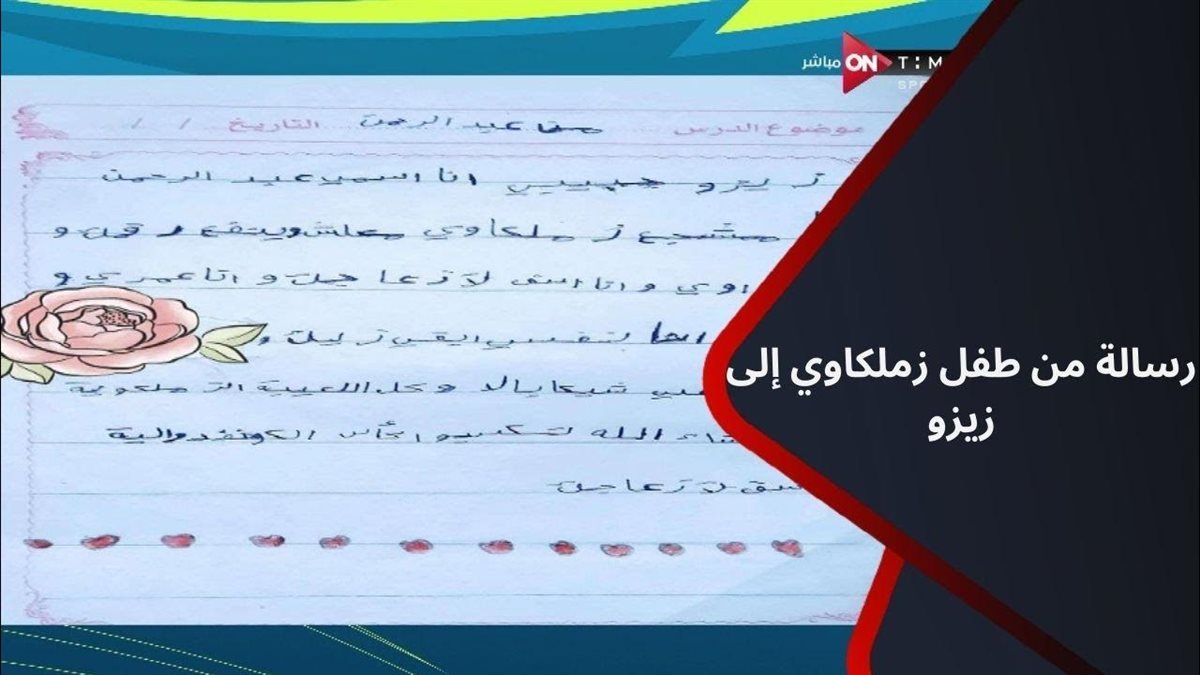 مباشر ON TIM
SPO
موضوع الدرس عبد الرحمن التاريخ / /
زيزو حبيبي انا اسمي عبد الرحمن
مشجع زملكاوي معلش ويتفع رقمك و
اوي و انا اسف لازعاجك و انا عمري
لنفسي ابقى زيك و
شيكابالا و كل اللعيبة الزملكوية
الله تكسبو الكونفدرالية
لازعاجك
رسالة من طفل زملكاوي إلى
زيزو